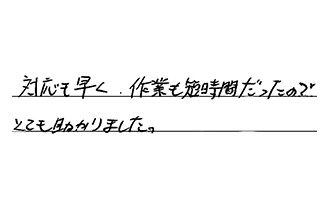 対応も早く、作業も短時間だったので
とても助かりました。